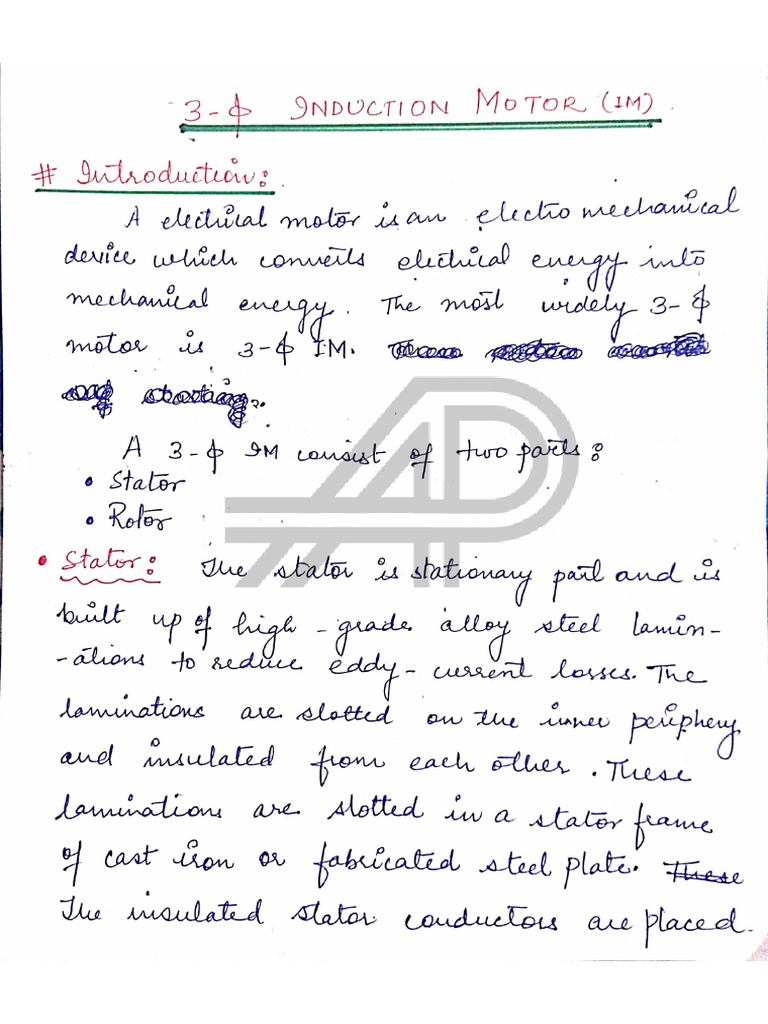 3-ф INDUCTION MOTOR (IM)
# Introduction:
A electrical motor is an electro mechanical
device which converts electrical energy into
mechanical energy. The most widely 3-ф
motor is 3-ф IM.
A 3-ф IM consist of two parts:
• Stator
• Rotor
• Stator: The stator is stationary part and is
built up of high-grade alloy steel lamin-
-ations to reduce eddy-current losses. The
laminations are slotted on the inner periphery
and insulated from each other. These
laminations are slotted in a stator frame
of cast iron or fabricated steel plate. These
The insulated stator conductors are placed